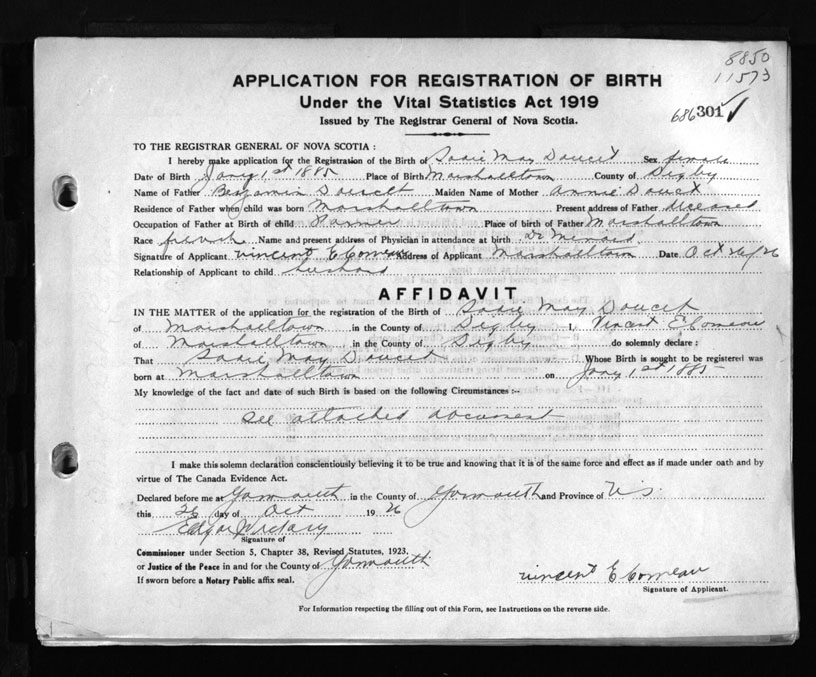 8850
11573
APPLICATION FOR REGISTRATION OF BIRTH
Under the Vital Statistics Act 1919
686 301 ✓
Issued by The Registrar General of Nova Scotia.
TO THE REGISTRAR GENERAL OF NOVA SCOTIA :
I hereby make application for the Registration of the Birth of Sadie May Doucet Sex female
Date of Birth Jany 1st 1885 Place of Birth Marshalltown County of Digby
Name of Father Benjamin Doucet Maiden Name of Mother Annie Doucet
Residence of Father when child was born Marshalltown Present address of Father deceased
Occupation of Father at Birth of child Farmer Place of birth of Father Marshalltown
Race french Name and present address of Physician in attendance at birth Dr
Signature of Applicant Vincent E Comeau Address of Applicant Marshalltown Date Oct 26/26
Relationship of Applicant to child husband
AFFIDAVIT
IN THE MATTER of the application for the registration of the Birth of Sadie May Doucet
of Marshalltown in the County of Digby I, Vincent E Comeau
of Marshalltown in the County of Digby do solemnly declare :
That Sadie May Doucet Whose Birth is sought to be registered was
born at Marshalltown on Jany 1st 1885
My knowledge of the fact and date of such Birth is based on the following Circumstances :-
See attached document
I make this solemn declaration conscientiously believing it to be true and knowing that it is of the same force and effect as if made under oath and by
virtue of The Canada Evidence Act.
Declared before me at Yarmouth in the County of Yarmouth and Province of N S
this 26 day of Oct 1926
Edgar
Signature of
Commissioner under Section 5, Chapter 38, Revised Statutes, 1923,
or Justice of the Peace in and for the County of Yarmouth
If sworn before a Notary Public affix seal.
Vincent E Comeau
Signature of Applicant.
For Information respecting the filling out of this Form, see Instructions on the reverse side.